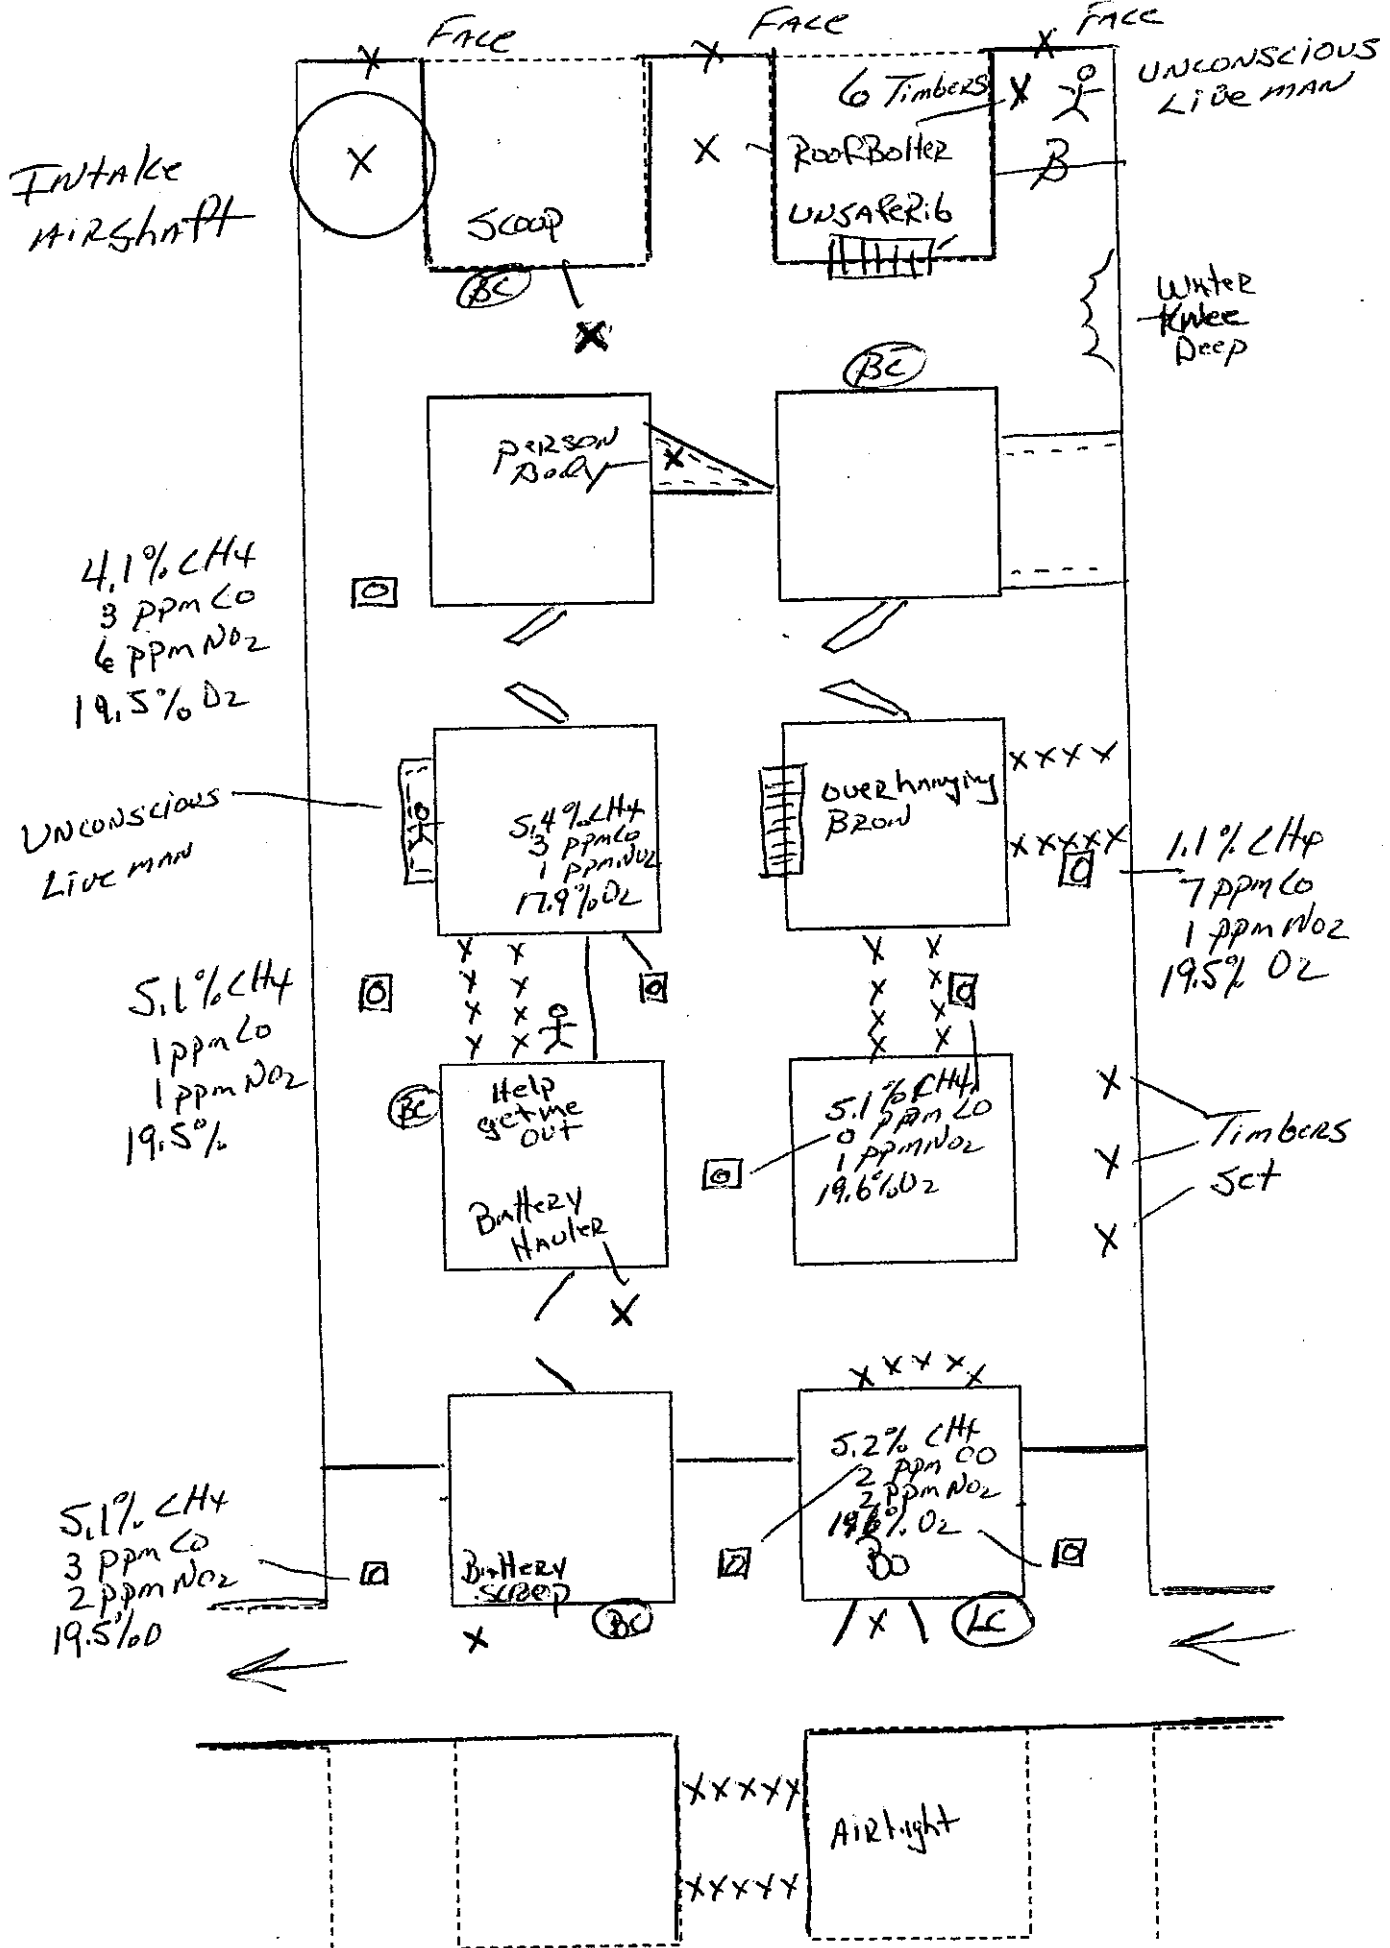 FACE
FACE
FACE
UNCONSCIOUS
Live MAN
6 Timbers
INTAKE
AIRShAft
RoofBolter
UNSAFeRib
Scoop
BC
B
WAteR
Knee
Deep
BC
peRSON
Body
4.1% CH4
3 ppm CO
6 ppm NO2
19.5% O2
UNCONSCIOUS
Live MAN
5.4% CH4
3 ppm CO
1 ppm NO2
17.9% O2
OveRhanging
BROW
1.1% CH4
7 ppm CO
1 ppm NO2
19.5% O2
5.1% CH4
1 ppm CO
1 ppm NO2
19.5%
BC
Help
get me
out
BAtteRy
HAuleR
5.1% CH4
0 ppm CO
1 ppm NO2
19.6% O2
Timbers
Set
5.2% CH4
2 ppm CO
2 ppm NO2
19.6% O2
BO
5.1% CH4
3 ppm CO
2 ppm NO2
19.5% O
BAtteRy
BC
LC
AIRtight